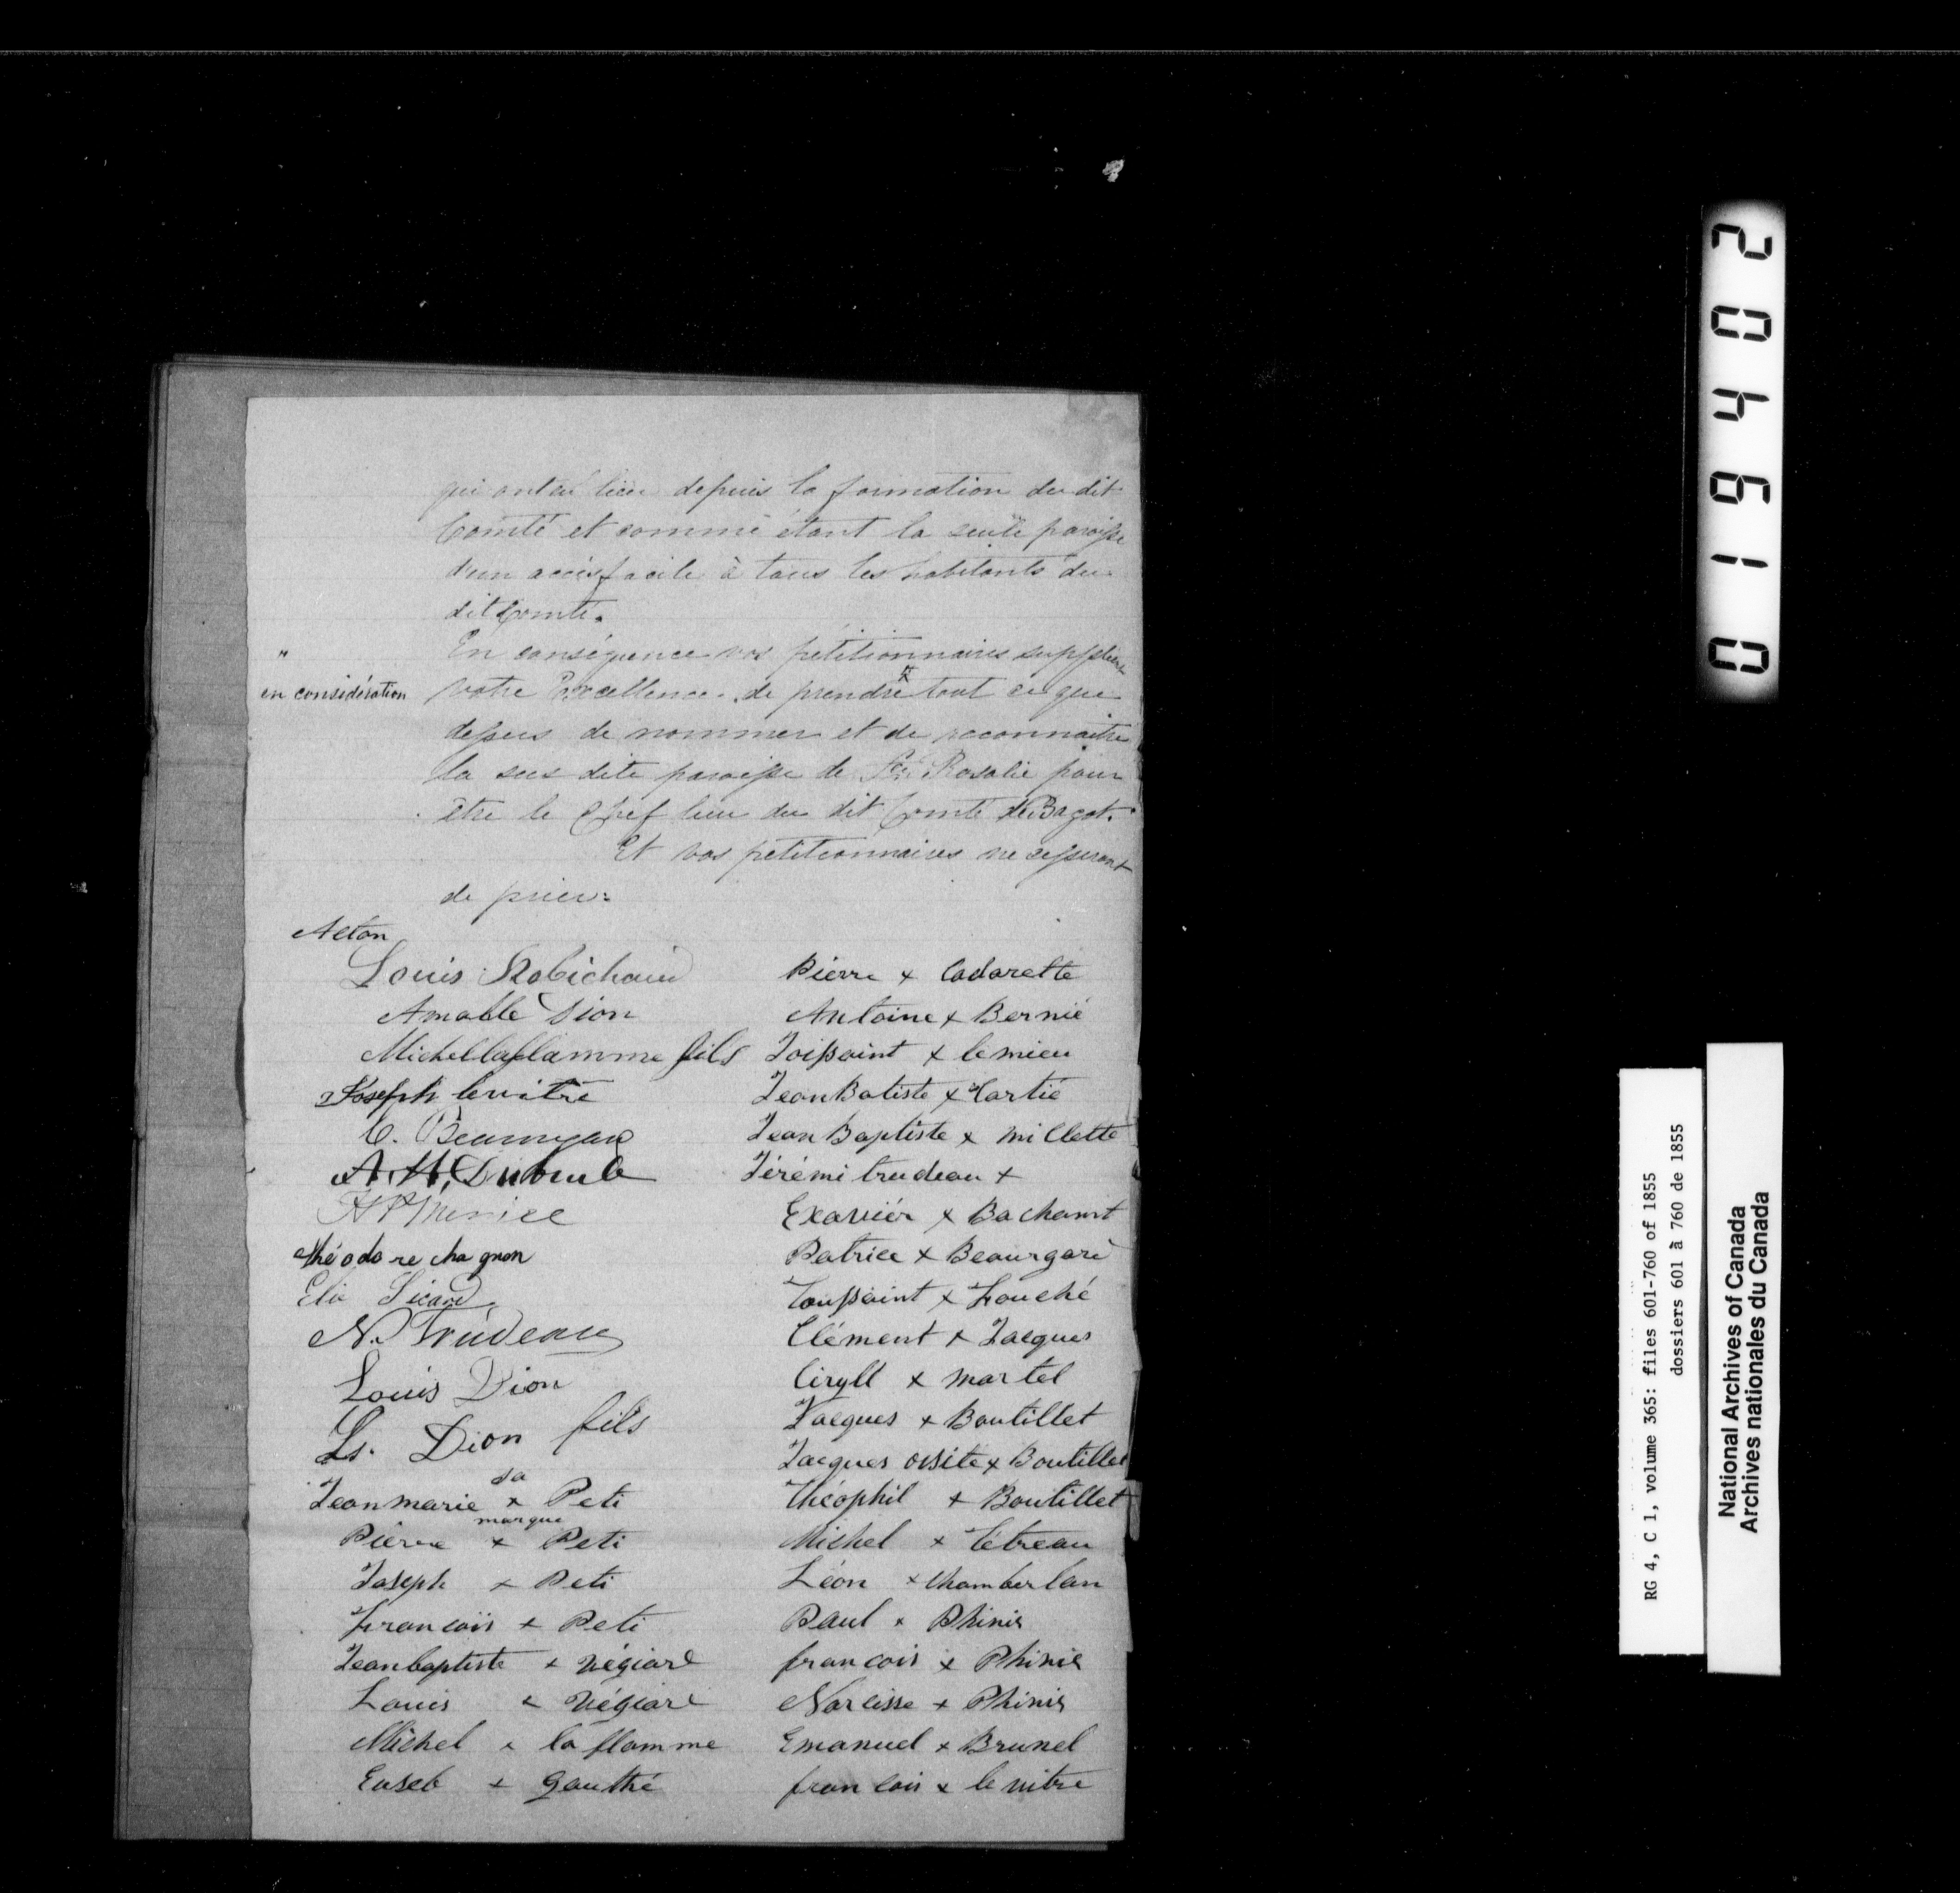 qui ont eu lieu depuis la formation du dit
Comté et comme étant la seule paroisse
d'un accès facile à tous les habitants du
dit Comté.
En conséquence vos pétitionnaires supplient
"
en considération
votre Excellence de prendre " tout ce que
dessus de nommer et de reconnaitre
la sus dite paroisse de Ste Rosalie pour
être le Chef lieu du dit Comté de Bagot.
Et vos pétitionnaires ne cesseront
de prier.
Acton
Louis Robichaud
Amable Dion
Michel laflamme fils
Joseph levitre
C. Beauregard
A. H. Dubrule
Théodore chagnon
Elie Sicard
N. Trudeau
Louis Dion
Ls. Dion fils
Jean marie sa x marque Peti
Pierre x Peti
Joseph x Peti
francois x Peti
Jean baptiste x végiard
Louis x végiard
Michel x la flamme
Euseb x Gauthé
Pierre x Cadarette
Antoine x Bernié
Toissaint x lemieu
Jean Batiste x Cartié
Jean Baptiste x millette
Jérémi trudeau x
Exaviér x Bachant
Patrice x Beaurgard
Toussaint x Fouché
Clément x Jacques
Ciryll x martel
Jacques x Boutillet
Jacques orsite x Boutillet
Théophil x Boutillet
Michel x Tétreau
Léon x Chamberlan
Paul x Phinix
francois x Phinix
Narcisse x Phinix
Emanuel x Brunel
francois x le vitre
204910
RG 4, C 1, volume 365: files 601-760 of 1855
dossiers 601 à 760 de 1855
National Archives of Canada
Archives nationales du Canada